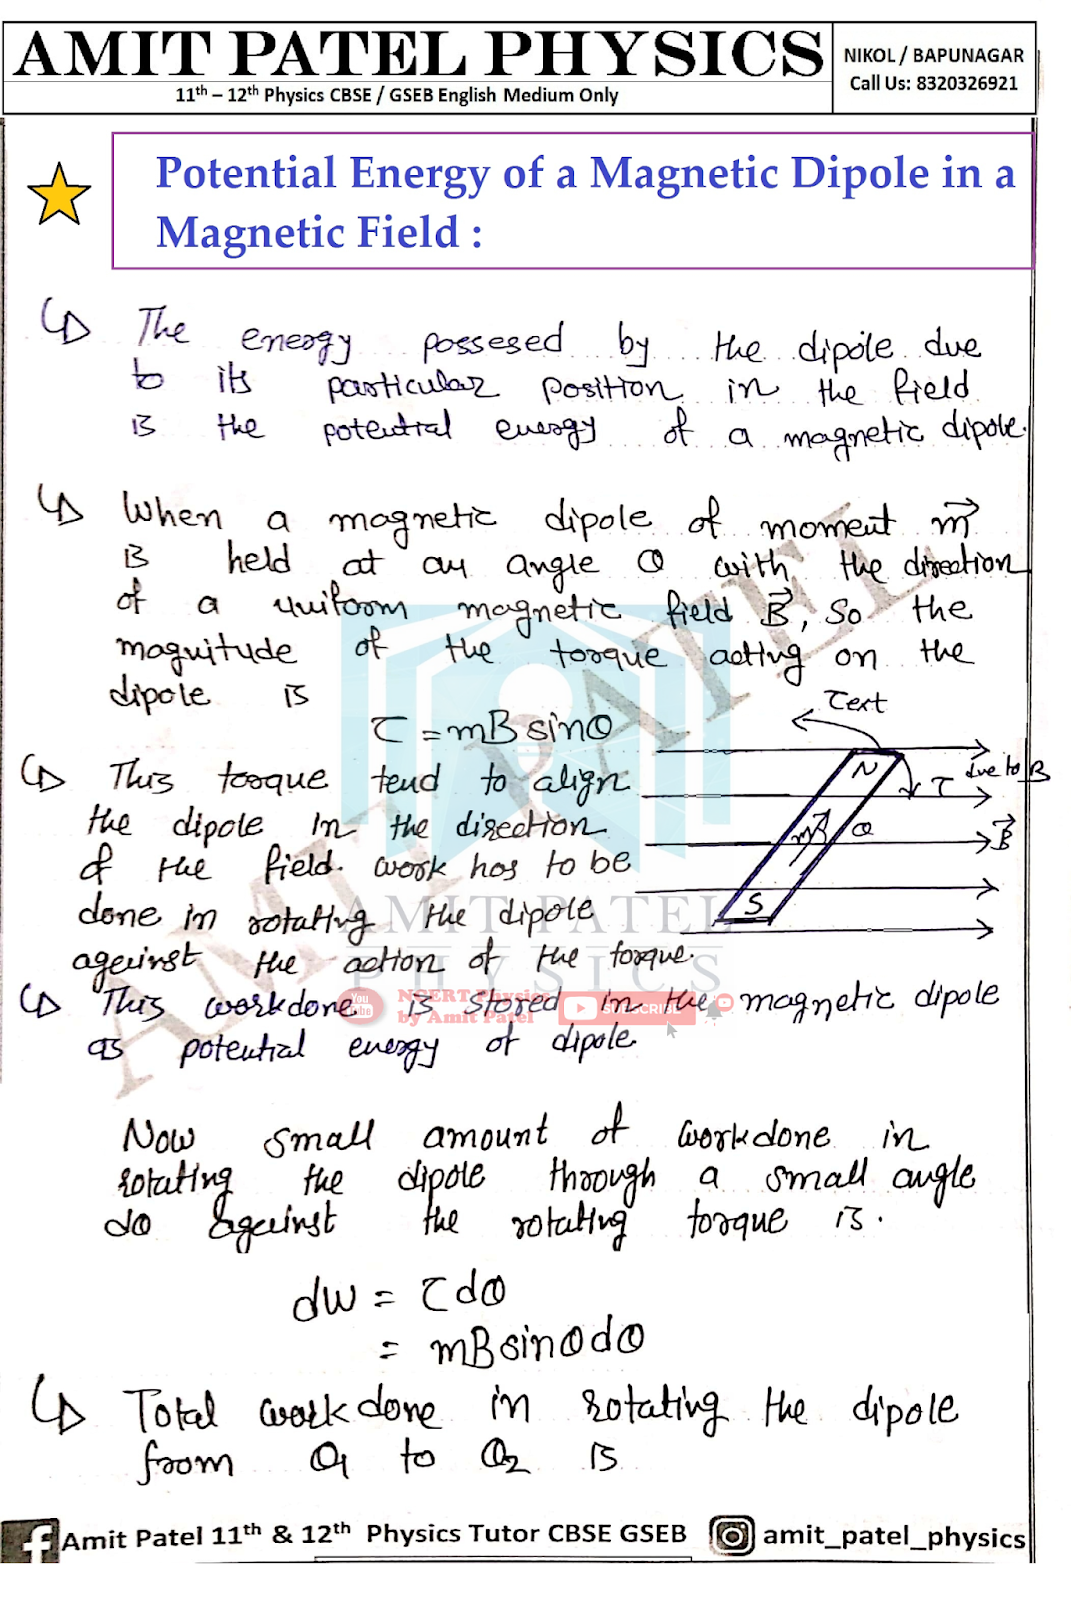 AMIT PATEL PHYSICS
11th – 12th Physics CBSE / GSEB English Medium Only
NIKOL / BAPUNAGAR
Call Us: 8320326921
Potential Energy of a Magnetic Dipole in a
Magnetic Field :
The energy possesed by the dipole due
to its particular position in the field
is the potential energy of a magnetic dipole.
When a magnetic dipole of moment m⃗
is held at an angle θ with the direction
of a uniform magnetic field B⃗, So the
magnitude of the torque acting on the
dipole is
τ = mB sinθ
τext
N
τ due to B
m⃗
θ
B⃗
S
This torque tend to align
the dipole in the direction
of the field. work has to be
done in rotating the dipole
against the action of the torque.
This workdone is stored in the magnetic dipole
as potential energy of dipole
Now small amount of workdone in
rotating the dipole through a small angle
dθ against the rotating torque is.
dw = τdθ
= mB sinθdθ
Total workdone in rotating the dipole
from θ1 to θ2 is
AMIT PATEL
AMIT PATEL
PHYSICS
You Tube
NSERT Physics
by Amit Patel
SUBSCRIBE
Amit Patel 11th & 12th Physics Tutor CBSE GSEB
amit_patel_physics